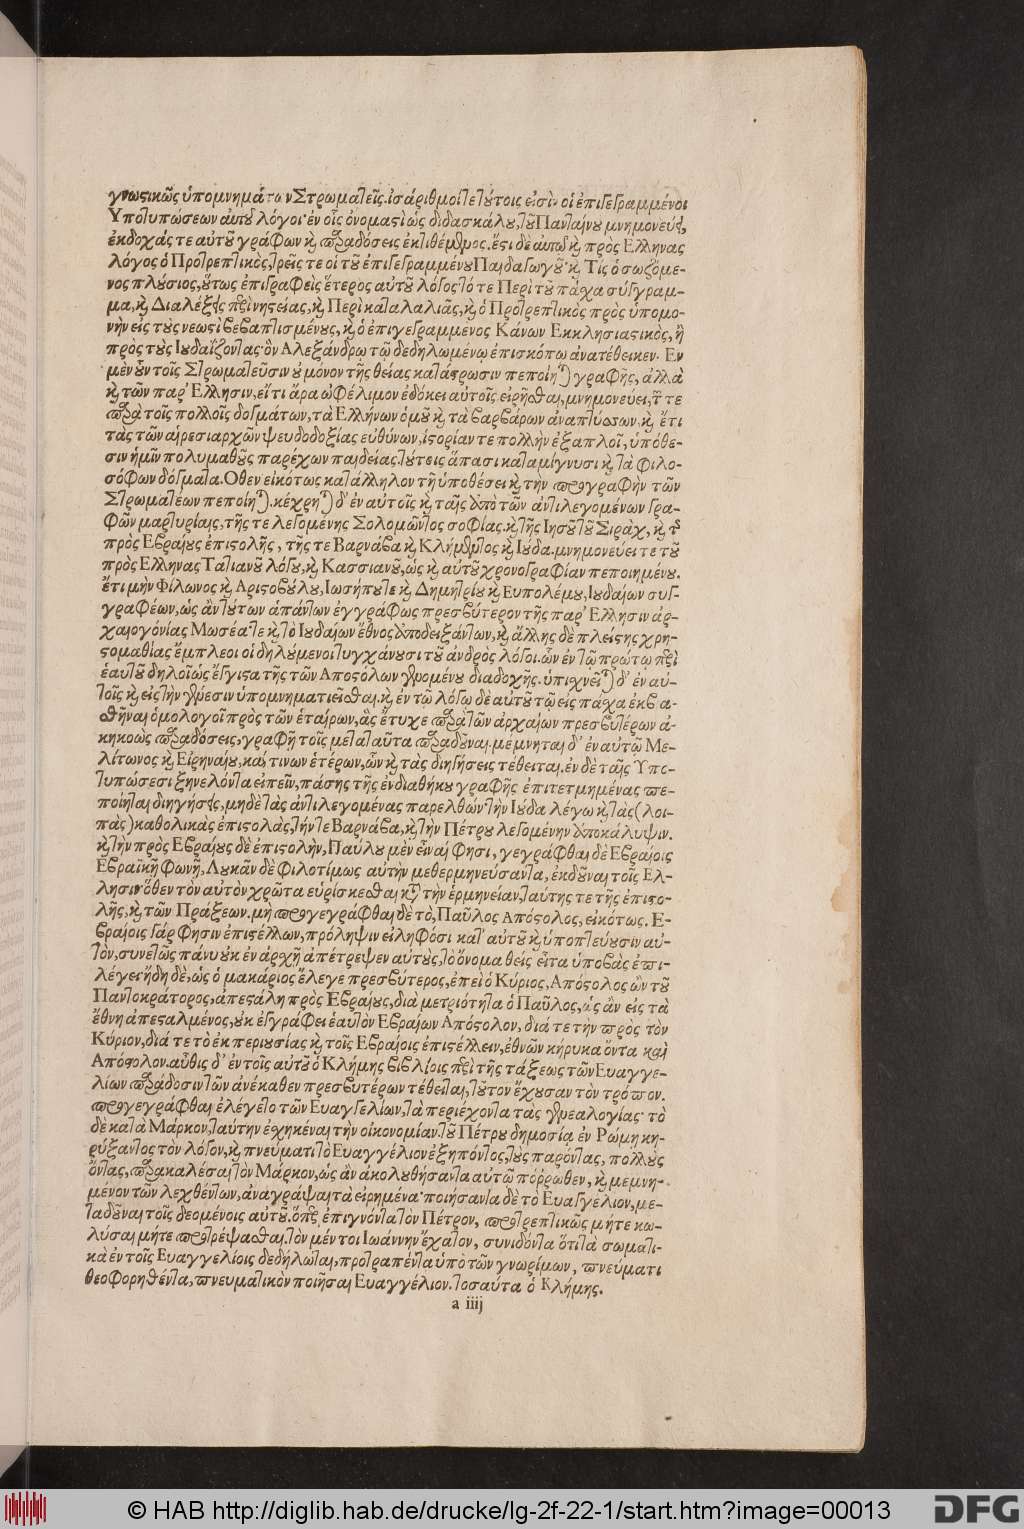 γνωστικῶς ὑπομνημάτων Στρωματεῖς. ἰσάριθμοί τε τούτοις εἰσὶν οἱ ἐπιγεγραμμένοι
Ὑποτυπώσεων αὐτοῦ λόγοι· ἐν οἷς ὀνομαστὶ ὡς διδασκάλου, τοῦ Πανταίνου μνημονεύει,
ἐκδοχάς τε αὐτοῦ γραφῶν καὶ παραδόσεις ἐκτιθέμενος. ἔστι δὲ αὐτῷ καὶ πρὸς Ἕλληνας
λόγος ὁ Προτρεπτικὸς, τρεῖς τε οἱ τοῦ ἐπιγεγραμμένου Παιδαγωγοῦ· καὶ Τίς ὁ σωζόμε-
νος πλούσιος, οὕτως ἐπιγραφεὶς ἕτερος αὐτοῦ λόγος· τό τε Περὶ τοῦ πάσχα σύγγραμ-
μα, καὶ Διαλέξεις περὶ νηστείας, καὶ Περὶ καταλαλιᾶς, καὶ ὁ Προτρεπτικὸς πρὸς ὑπομο-
νὴν εἰς τοὺς νεωστὶ βεβαπτισμένους, καὶ ὁ ἐπιγεγραμμενος Κάνων Ἐκκλησιαστικὸς, ἢ
πρὸς τοὺς Ἰουδαΐζοντας· ὃν Ἀλεξάνδρῳ τῷ δεδηλωμένῳ ἐπισκόπῳ ἀνατέθεικεν. Ἐν
μὲν οὖν τοῖς Στρωματεῦσιν οὐ μόνον τῆς θείας κατάστρωσιν πεποίηται γραφῆς, ἀλλὰ
καὶ τῶν παρ' Ἕλλησιν, εἴ τι ἄρα ὠφέλιμον ἐδόκει αὐτοῖς εἰρῆσθαι, μνημονεύει, τῶν τε
παρὰ τοῖς πολλοῖς δογμάτων, τὰ Ἑλλήνων ὁμοῦ καὶ τὰ βαρβάρων ἀναπτύσσων. καὶ ἔτι
τὰς τῶν αἱρεσιαρχῶν ψευδοδοξίας εὐθύνων, ἱστορίαν τε πολλὴν ἐξαπλοῖ, ὑπόθε-
σιν ἡμῖν πολυμαθοῦς παρέχων παιδείας. τούτοις ἅπασι καταμίγνυσι καὶ τὰ φιλο-
σόφων δόγματα. Ὅθεν εἰκότως κατάλληλον τῇ ὑποθέσει καὶ τὴν προγραφὴν τῶν
Στρωματέων πεποίηται. κέχρηται δ' ἐν αὐτοῖς καὶ ταῖς ἀπὸ τῶν ἀντιλεγομένων γρα-
φῶν μαρτυρίαις, τῆς τε λεγομένης Σολομῶντος σοφίας. καὶ τῆς Ἰησοῦ τοῦ Σιρὰχ, καὶ τῆς
πρὸς Ἑβραίους ἐπιστολῆς, τῆς τε Βαρνάβα καὶ Κλήμεντος καὶ Ἰούδα. μνημονεύει τε τοῦ
πρὸς Ἕλληνας Τατιανοῦ λόγου, καὶ Κασσιανοῦ, ὡς καὶ αὐτοῦ χρονογραφίαν πεποιημένου.
ἔτι μὴν Φίλωνος καὶ Ἀριστοβούλου, Ἰωσήπου τε καὶ Δημητρίου καὶ Εὐπολέμου, Ἰουδαίων συγ-
γραφέων, ὡς ἂν τούτων ἁπάντων ἐγγράφως πρεσβύτερον τῆς παρ' Ἕλλησιν ἀρ-
χαιογονίας Μωσέα τε καὶ τὸ Ἰουδαίων ἔθνος ἀποδειξάντων, καὶ ἄλλης δὲ πλείστης χρη-
στομαθίας ἔμπλεοι οἱ δηλούμενοι τυγχάνουσι τοῦ ἀνδρὸς λόγοι. ὧν ἐν τῷ πρώτῳ περὶ
ἑαυτοῦ δηλοῖ ὡς ἔγγιστα τῆς τῶν Ἀποστόλων γενομένου διαδοχῆς. ὑπισχνεῖται δ' ἐν αὐ-
τοῖς καὶ εἰς τὴν γένεσιν ὑπομνηματιεῖσθαι. καὶ ἐν τῷ λόγῳ δὲ αὐτοῦ τῷ εἰς πάσχα ἐκβια-
σθῆναι ὁμολογοῖ πρὸς τῶν ἑταίρων, ἃς ἔτυχε παρὰ τῶν ἀρχαίων πρεσβυτέρων ἀ-
κηκοὼς παραδόσεις, γραφῇ τοῖς μετὰ ταῦτα παραδοῦναι. μέμνηται δ' ἐν αὐτῷ Με-
λίτωνος καὶ Εἰρηναίου, καί τινων ἑτέρων, ὧν καὶ τὰς διηγήσεις τέθειται. ἐν δὲ ταῖς Ὑπο-
τυπώσεσι ξυνελόντα εἰπεῖν, πάσης τῆς ἐνδιαθήκου γραφῆς ἐπιτετμημένας πε-
ποίηται διηγήσεις, μηδὲ τὰς ἀντιλεγομένας παρελθὼν τὴν Ἰούδα λέγω καὶ τὰς (λοι-
πὰς) καθολικὰς ἐπιστολὰς, τήν τε Βαρνάβα, καὶ τὴν Πέτρου λεγομένην ἀποκάλυψιν.
καὶ τὴν πρὸς Ἑβραίους δὲ ἐπιστολὴν, Παύλου μὲν εἶναί φησι, γεγράφθαι δὲ Ἑβραίοις
Ἑβραϊκῇ φωνῇ, Λουκᾶν δὲ φιλοτίμως αὐτὴν μεθερμηνεύσαντα, ἐκδοῦναι τοῖς Ἕλ-
λησιν· ὅθεν τὸν αὐτὸν χρῶτα εὑρίσκεσθαι κατὰ τὴν ἑρμηνείαν, ταύτης τε τῆς ἐπιστο-
λῆς, καὶ τῶν Πράξεων. μὴ προγεγράφθαι δὲ τὸ, Παῦλος Ἀπόστολος, εἰκότως. Ἑ-
βραίοις γάρ φησιν ἐπιστέλλων, πρόληψιν εἰληφόσι κατ' αὐτοῦ καὶ ὑποπτεύουσιν αὐ-
τὸν, συνετῶς πάνυ οὐκ ἐν ἀρχῇ ἀπέτρεψεν αὐτοὺς, τὸ ὄνομα θείς· εἶτα ὑποβὰς ἐπι-
λέγει· ἤδη δὲ, ὡς ὁ μακάριος ἔλεγε πρεσβύτερος, ἐπεὶ ὁ Κύριος, Ἀπόστολος ὢν τοῦ
Παντοκράτορος, ἀπεστάλη πρὸς Ἑβραίους, διὰ μετριότητα ὁ Παῦλος, ὡς ἂν εἰς τὰ
ἔθνη ἀπεσταλμένος, οὐκ ἐγγράφει ἑαυτὸν Ἑβραίων Ἀπόστολον, διά τε τὴν πρὸς τὸν
Κύριον, διά τε τὸ ἐκ περιουσίας καὶ τοῖς Ἑβραίοις ἐπιστέλλειν, ἐθνῶν κήρυκα ὄντα καὶ
Ἀπόστολον. αὖθις δ' ἐν τοῖς αὐτοῦ ὁ Κλήμης βιβλίοις περὶ τῆς τάξεως τῶν Εὐαγγε-
λίων παράδοσιν τῶν ἀνέκαθεν πρεσβυτέρων τέθειται, τοῦτον ἔχουσαν τὸν τρόπον.
προγεγράφθαι ἐλέγετο τῶν Εὐαγγελίων, τὰ περιέχοντα τὰς γενεαλογίας· τὸ
δὲ κατὰ Μάρκον, ταύτην ἐσχηκέναι τὴν οἰκονομίαν. τοῦ Πέτρου δημοσίᾳ ἐν Ῥώμῃ κη-
ρύξαντος τὸν λόγον, καὶ πνεύματι τὸ Εὐαγγέλιον ἐξηπόντος, τοὺς παρόντας, πολλοὺς
ὄντας, παρακαλέσαι τὸν Μάρκον, ὡς ἂν ἀκολουθήσαντα αὐτῷ πόῤῥωθεν, καὶ μεμνη-
μένον τῶν λεχθέντων, ἀναγράψαι τὰ εἰρημένα· ποιήσαντα δὲ τὸ Εὐαγγέλιον, με-
ταδοῦναι τοῖς δεομένοις αὐτοῦ. ὅπερ ἐπιγνόντα τὸν Πέτρον, προτρεπτικῶς μήτε κω-
λύσαι μήτε προτρέψασθαι. τὸν μέντοι Ἰωάννην ἔσχατον, συνιδόντα ὅτι τὰ σωματι-
κὰ ἐν τοῖς Εὐαγγελίοις δεδήλωται, προτραπέντα ὑπὸ τῶν γνωρίμων, πνεύματι
θεοφορηθέντα, πνευματικὸν ποιῆσαι Εὐαγγέλιον. τοσαῦτα ὁ Κλήμης.
a iiij
© HAB http://diglib.hab.de/drucke/lg-2f-22-1/start.htm?image=00013
DFG